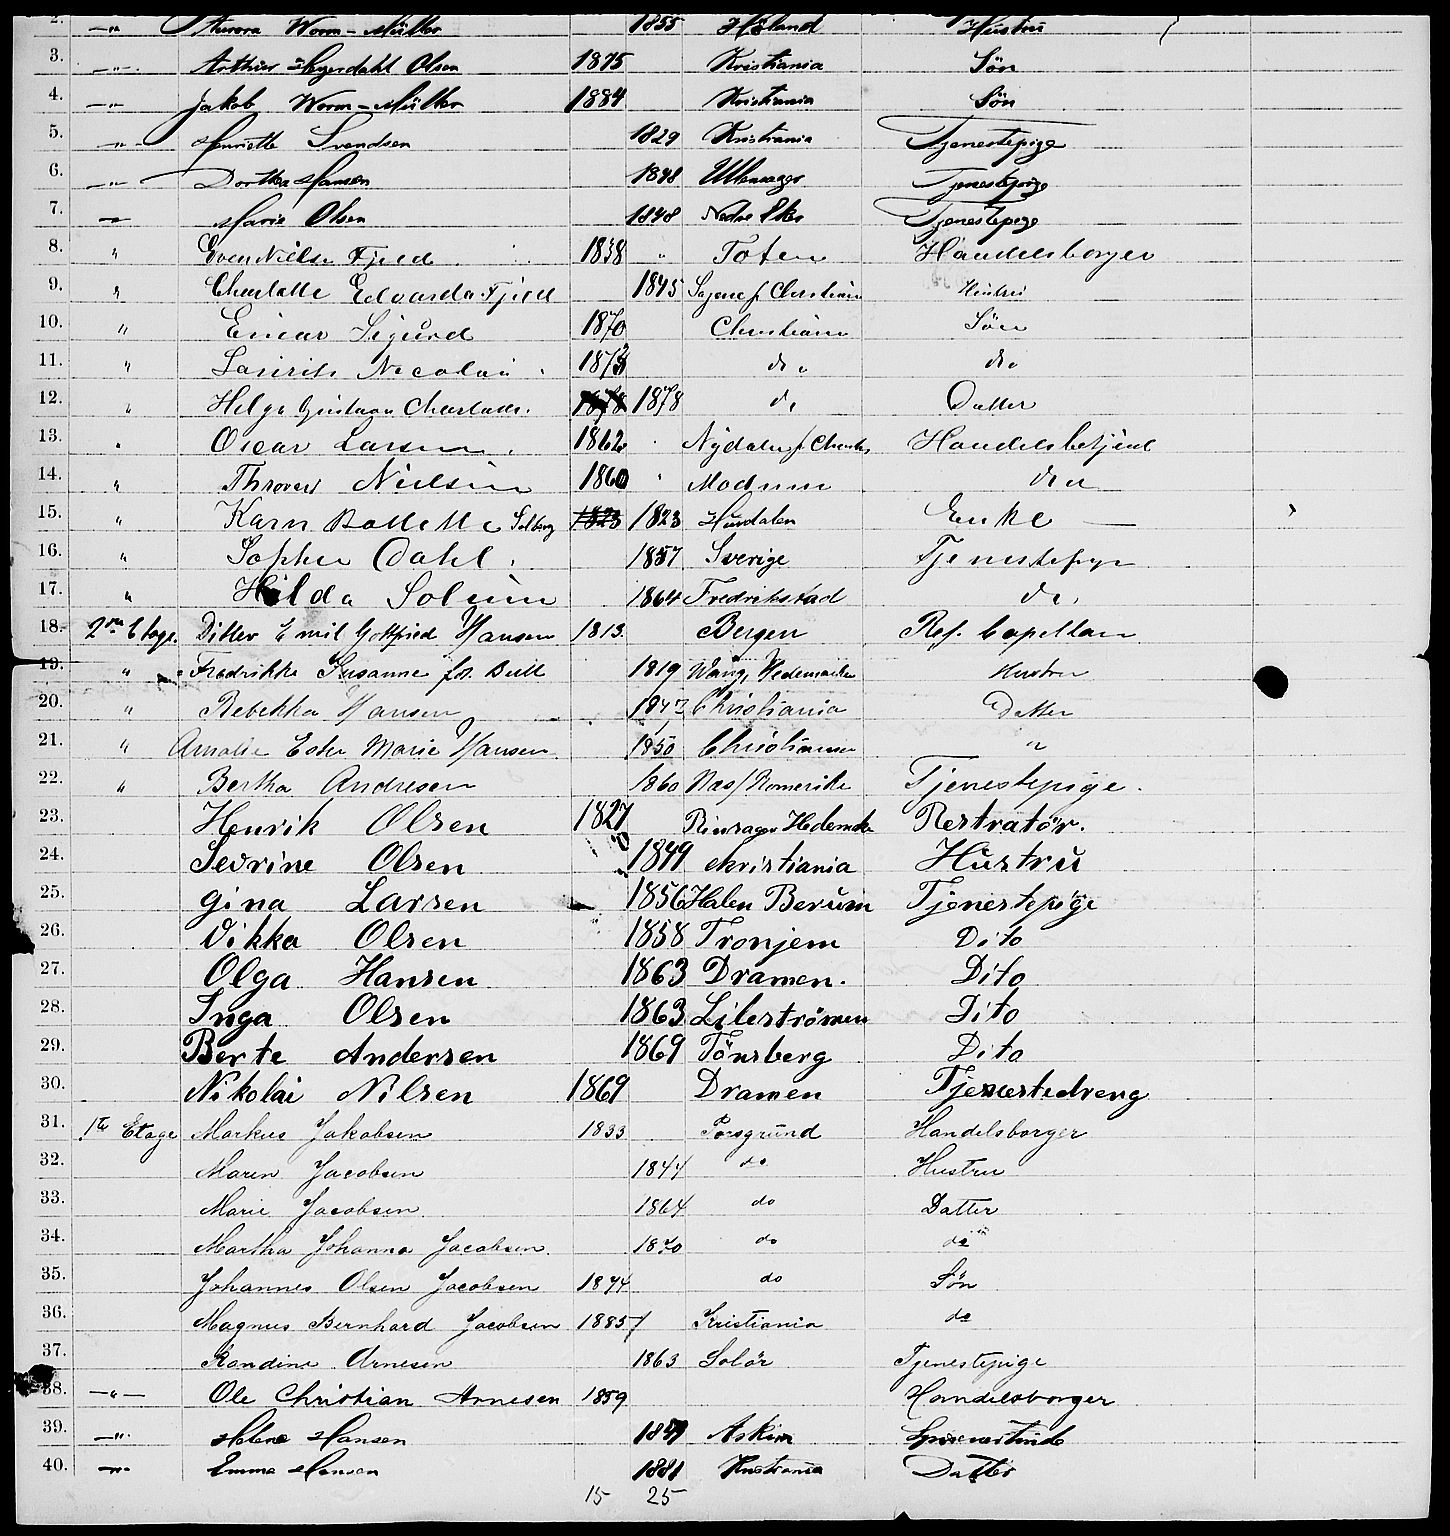 2. —"— Aurora Worm-Müller 1855 Høland Hustru
3. —"— Arthur Heyerdahl Olsen 1875 Kristiania Søn
4. —"— Jakob Worm-Müller 1884 Kristiania Søn
5. —"— Henriette Svendsen 1829 Kristiania Tjenestepige
6. —"— Dorthea Hansen 1848 Ullensager Tjenestepige
7. —"— Marie Olsen 1848 Nedre Eker Tjenestepige
8. " Even Nielsen Fjeld 1838 " Toten Handelsborger
9. " Charlotte Edvarda Fjeld 1845 Christiania Hustru
10. " Einar Sigurd 1870 Christiania Søn
11. " Laurits Nicolai 1873 do do
12. " Helga Gustava Charlotte. 1878 1878 do Datter
13. " Oscar Larsen 1862 Nydalen Handelsbetjent
14. " Nielsen 1860 " Modum do
15. " Karn Bollette Solberg 1823 1823 Hurdalen Enke —
16. " Sophie Dahl 1857 Sverige Tjenestepige
17. " Hilda Solum 1864 Fredrikstad do
18. 2den Etage. Ditlev Emil Gottfried Hansen 1813. Bergen Res. Capellan
19. " Fredrikke Susanne fød. Bull 1819 Wang, Hedemarken Hustru
20. " Rebekka Hansen 1847 Christiania Datter
21. " Amalie Ester Marie Hansen 1850 Christiania "
22. " Bertha Andresen 1860 Næs/Romerike Tjenestepige.
23. Henrik Olsen 1827 Rinsager Hedemark Restratör.
24. Sevrine Olsen 1849 christiania Hustru
25. gina Larsen 1856 Halen Berum Tjenestepige
26. Vikka Olsen 1858 Tronjem Dito
27. Olga Hansen 1863 Dramen. Dito
28. Inga Olsen 1863 Lileströmen Dito
29. Berte Andersen 1869 Tönsberg Dito
30. Nikolai Nilsen 1869 Dramen Tjenestedreng
31. 1ste Etage Markus Jakobsen 1833 Porsgrund Handelsborger
32. Maren Jacobsen 1844 do Hustru
33. Marie Jacobsen 1864 do Datter
34. Martha Johanna Jacobsen 1870 do do
35. Johannes Olsen Jacobsen 1874 do Søn
36. Magnus Bernhard Jacobsen 1885 Kristiania do
37. Randine Arnesen 1863 Solør Tjenestepige
38. —"— Ole Christian Arnesen 1859 Handelsborger
39. —"— Helene Hansen Askim
40. —"— Emma Hansen 1881 Kristiania Datter
15 25